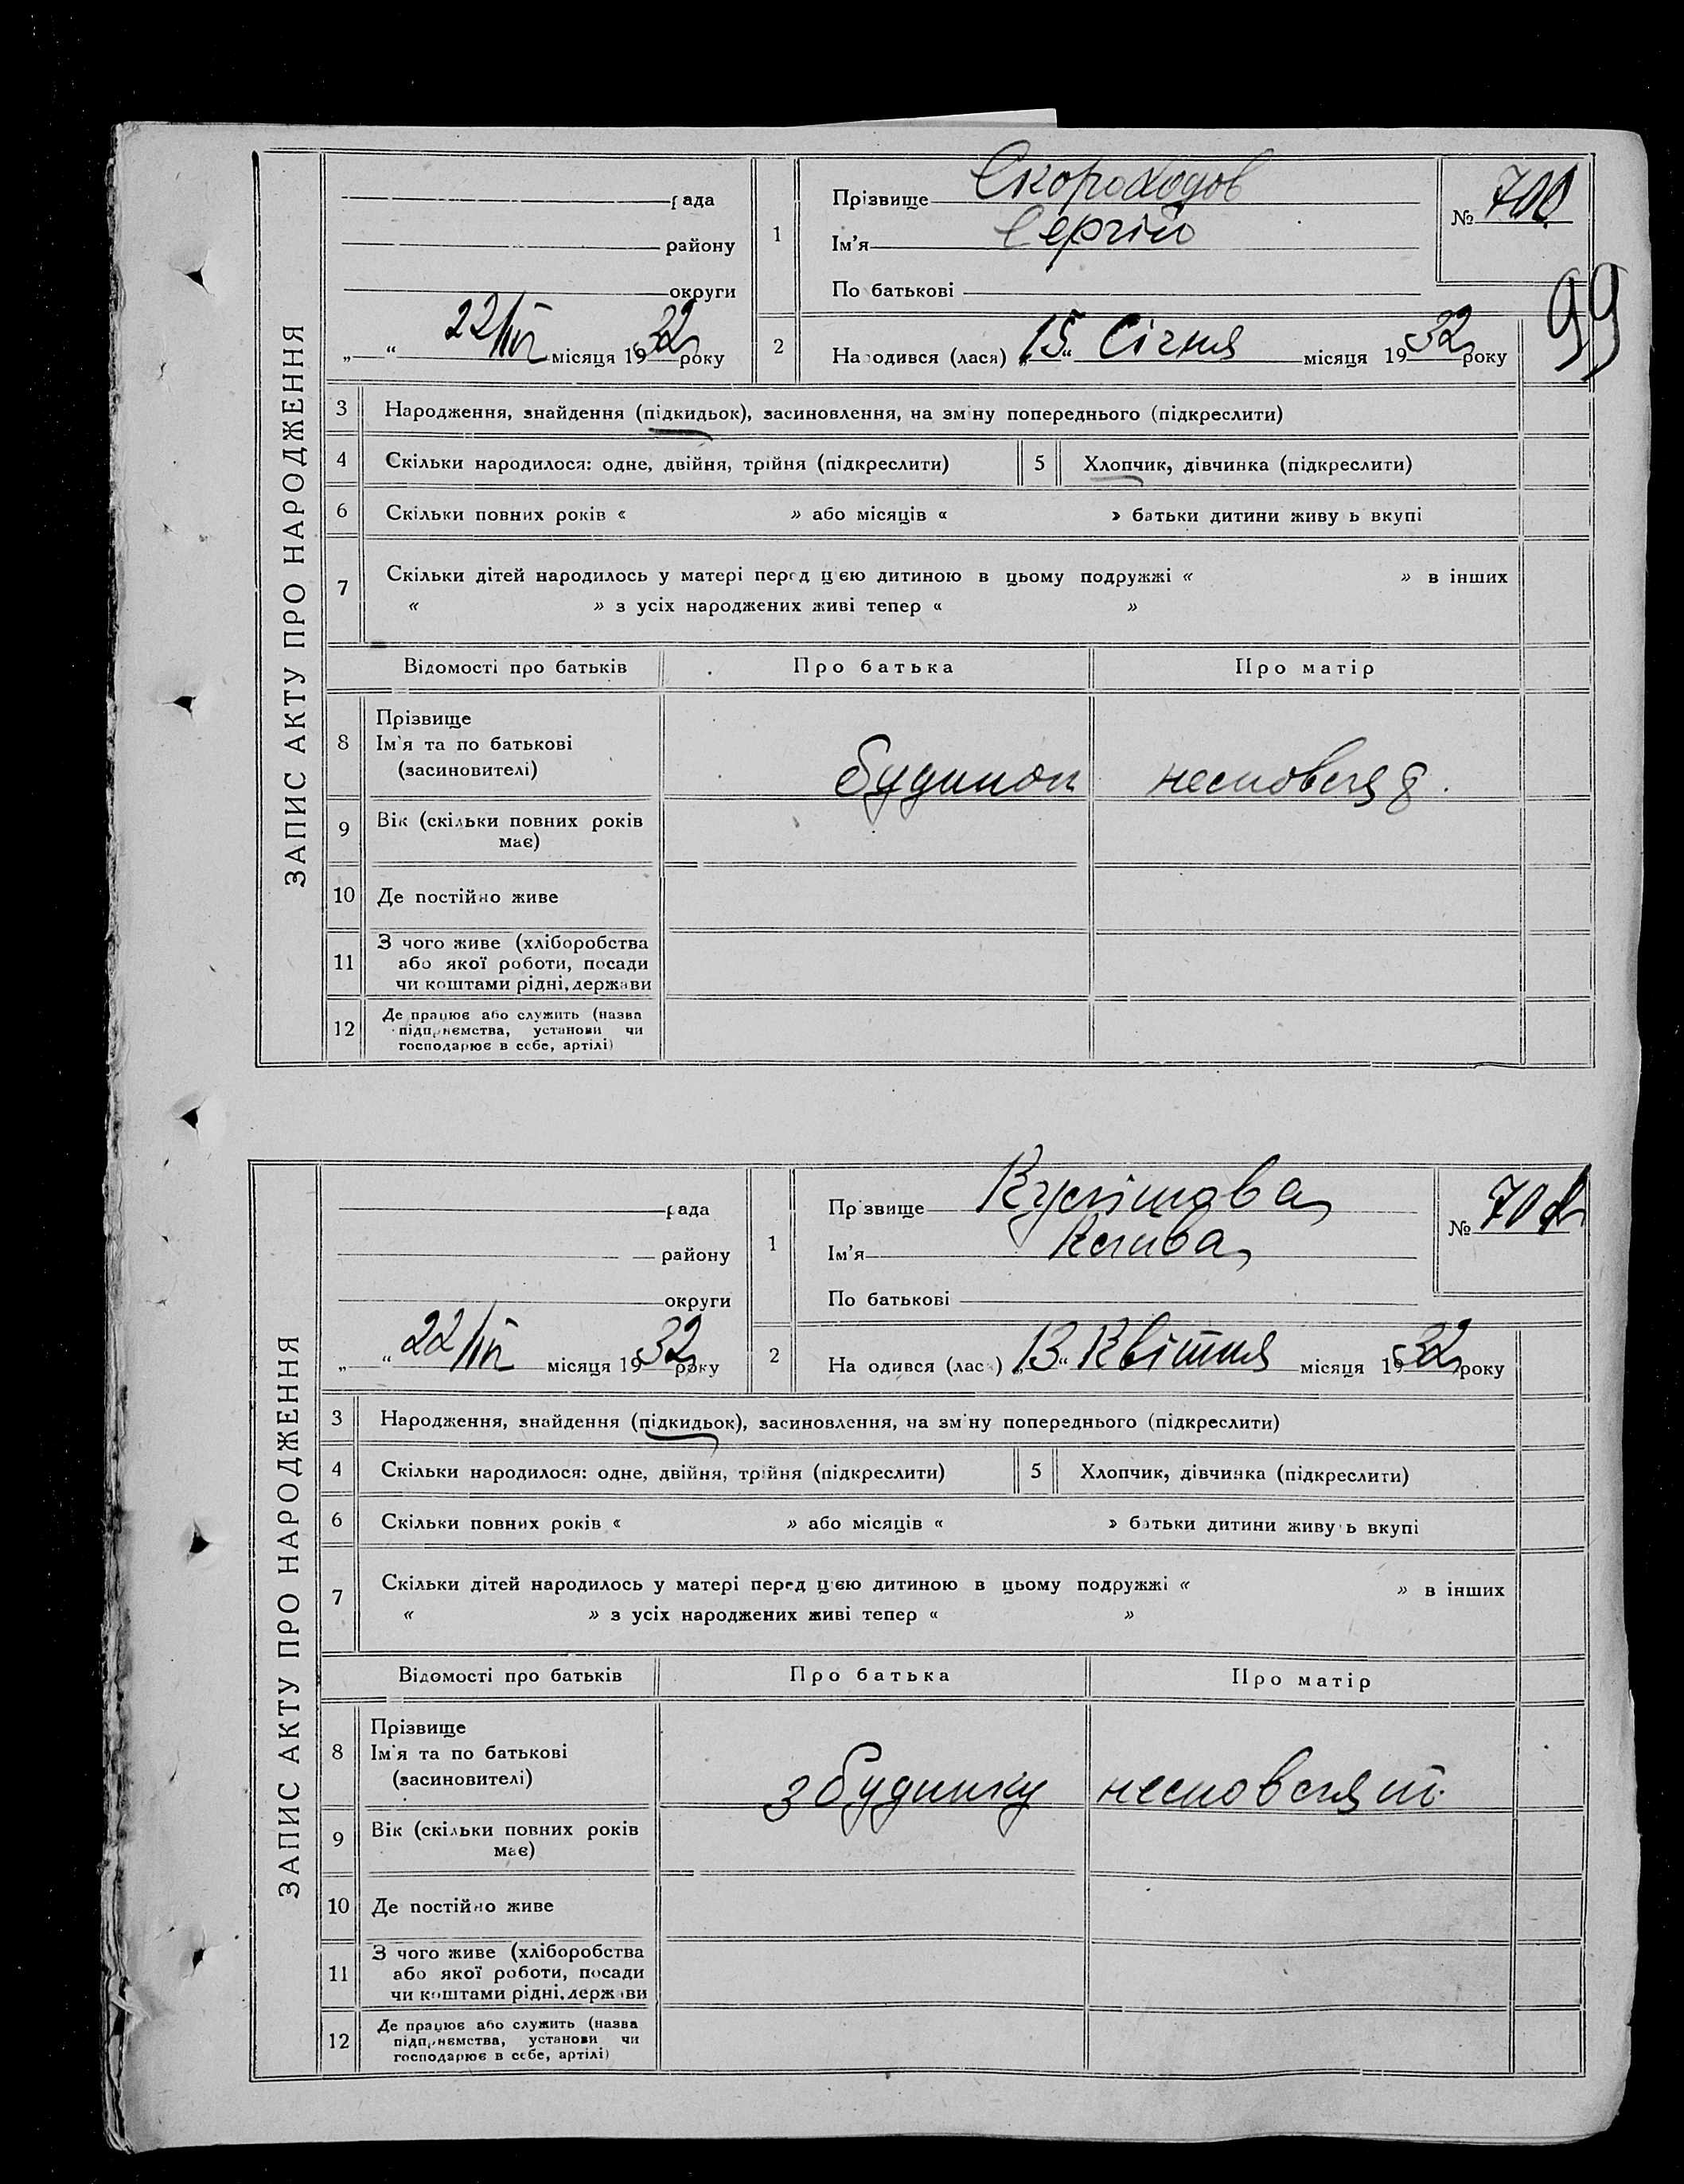 ЗАПИС АКТУ ПРО НАРОДЖЕННЯ
рада
району
округи
„ “ 22/IV місяця 1932 року
1
Прізвище Скороходов
Ім'я Сергій
По батькові
№ 700
99
2
Народився (лася) „15“ Січня місяця 1932 року
3 Народження, знайдення (підкидьок), засиновлення, на зміну попереднього (підкреслити)
4 Скільки народилося: одне, двійня, трійня (підкреслити) 5 Хлопчик, дівчинка (підкреслити)
6 Скільки повних років « » або місяців « » батьки дитини живуть вкупі
7 Скільки дітей народилось у матері перед цією дитиною в цьому подружжі « » в інших
« » з усіх народжених живі тепер « »
Відомості про батьків Про батька Про матір
8 Прізвище
Ім'я та по батькові
(засиновителі)
будинок
9 Вік (скільки повних років
має)
10 Де постійно живе
11 З чого живе (хліборобства
або якої роботи, посади
чи коштами рідні, держави
12 Де працює або служить (назва
підприємства, установи чи
господарює в себе, артілі)
ЗАПИС АКТУ ПРО НАРОДЖЕННЯ
рада
району
округи
„ “ 22/IV місяця 1932 року
1
Прізвище
Ім'я
По батькові
№ 701
2
Народився (лася) „13“ Квітня місяця 1932 року
3 Народження, знайдення (підкидьок), засиновлення, на зміну попереднього (підкреслити)
4 Скільки народилося: одне, двійня, трійня (підкреслити) 5 Хлопчик, дівчинка (підкреслити)
6 Скільки повних років « » або місяців « » батьки дитини живуть вкупі
7 Скільки дітей народилось у матері перед цією дитиною в цьому подружжі « » в інших
« » з усіх народжених живі тепер « »
Відомості про батьків Про батька Про матір
8 Прізвище
Ім'я та по батькові
(засиновителі)
з будинку немовлят.
9 Вік (скільки повних років
має)
10 Де постійно живе
11 З чого живе (хліборобства
або якої роботи, посади
чи коштами рідні, держави
12 Де працює або служить (назва
підприємства, установи чи
господарює в себе, артілі)